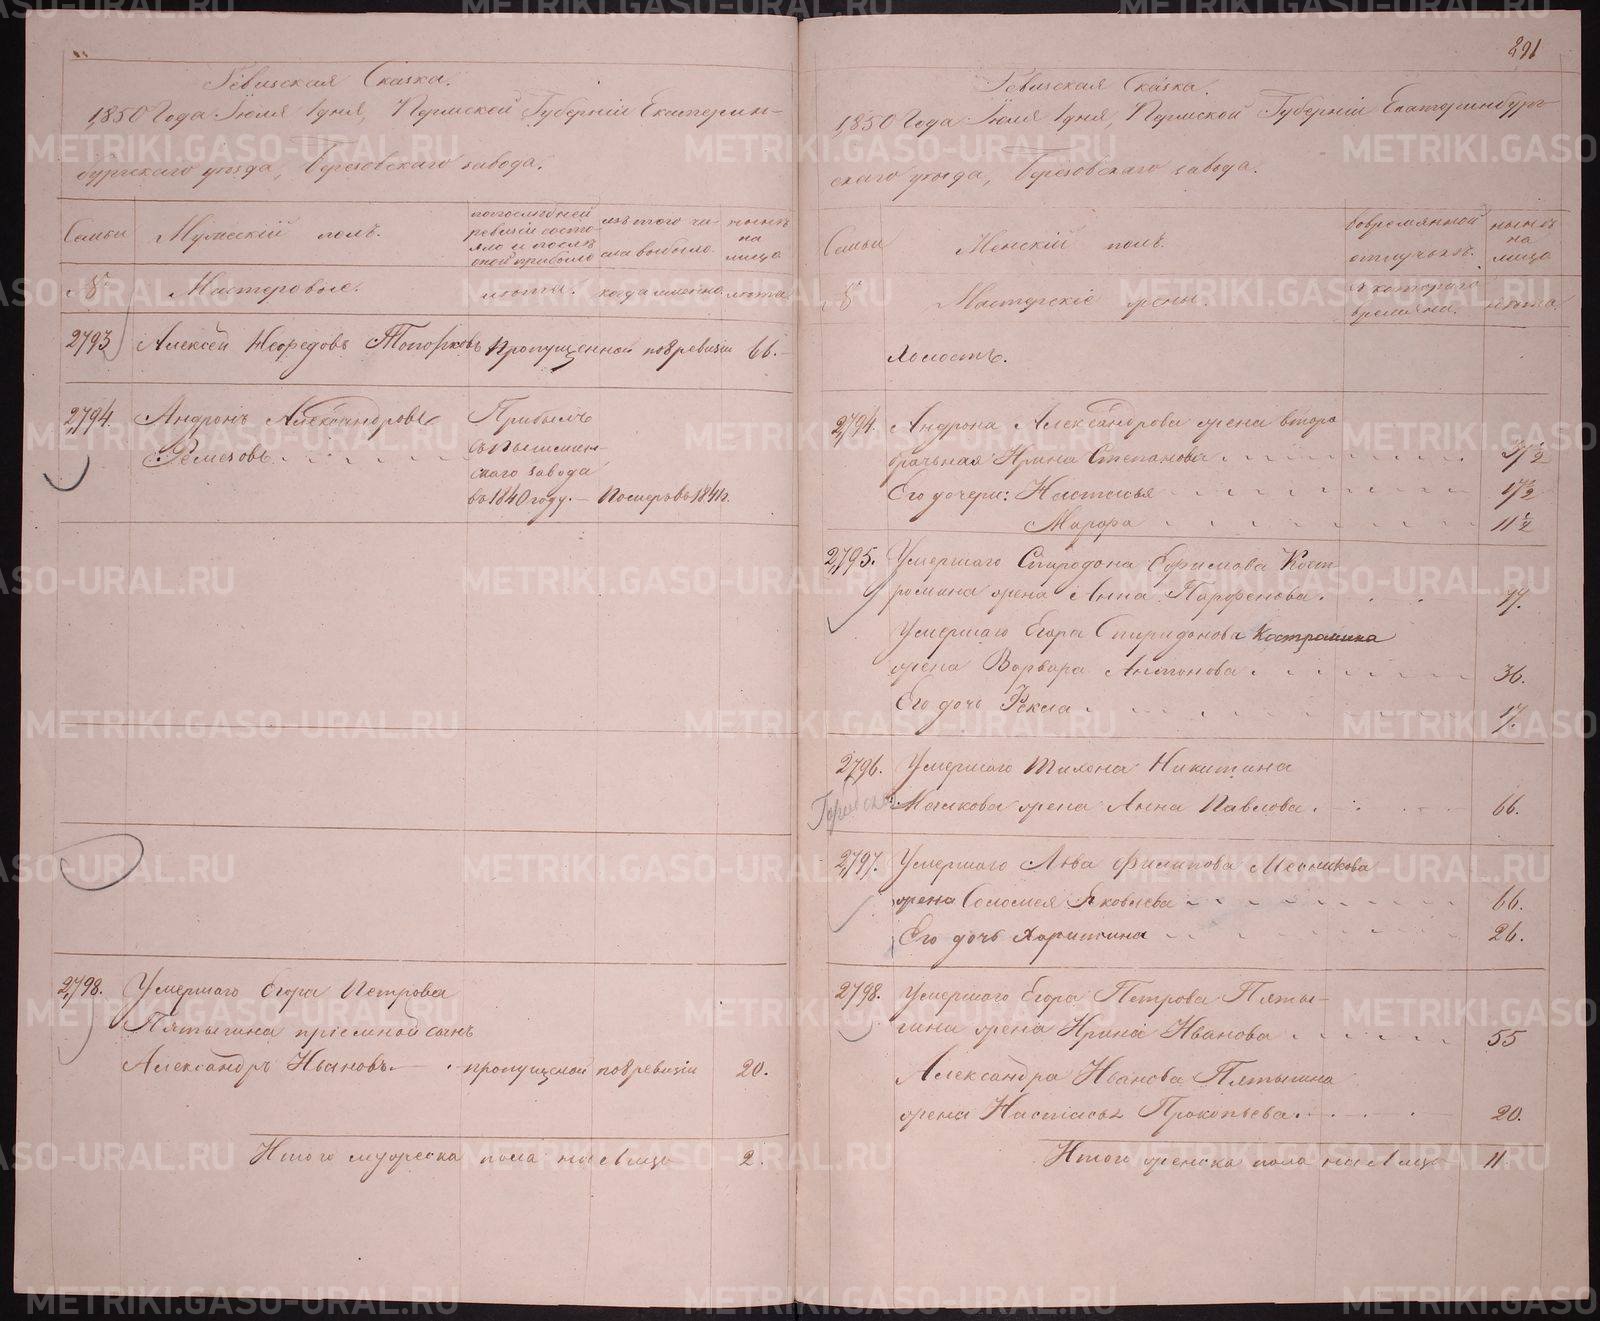 Ревизская Сказка.
1850 Года Июля 1 дня, Пермской Губерніи Екатерин-
бургскаго уезда, Березовскаго завода.
Семьи
Мужескій полъ.
по последней ревизіи состояло и после оной прибыло
изъ того числа выбыло
ныне на лицо
№
Мастеровые.
лета.
когда именно
лета
2793
Алексей Неѳедовъ Топорковъ пропущенной по 8 ревизіи 66.
2794.
Андронъ Александровъ
Ремезовъ
Прибылъ
съ Пышмин
скаго завода
въ 1840 году. — Померъ въ 1841 г.
2798.
Умершаго Егора Петрова
Пятыгина пріемной сынъ
Александръ Ивановъ — пропущеной по 8 ревизіи 20.
Итого мужеска пола на лицо 2.
891
Ревизская Сказка.
1850 Года Июля 1 дня, Пермской Губерніи Екатеринбург-
скаго уезда, Березовскаго завода.
Семьи
Женскій полъ.
во временной отлучке
ныне на лицо
№
Мастерскіе жены.
съ котораго времяни.
лета.
Холостъ.
2794.
Андрона Александрова жена второ
брачьная Ирина Степанова 37 1/2
Его дочери: Настасья 17 1/2
Марфа 11 1/2
2795.
Умершаго Спиродона Ефимова Кост
ромина жена Анна Парфенова. 77.
Умершаго Егора Спиридонова Костромина
жена Варвара Антонова 36.
Его дочь Фекла 17.
2796.
Умершаго Тихона Никитина
Малкова жена Анна Павлова. 66.
2797.
Умершаго Лва Филипова Месникова
жена Соломея Яковлева 66.
Его дочь Харитина 26.
2798.
Умершаго Егора Петрова Пяты-
гина жена Ирина Иванова 55
Александра Иванова Пятыгина
жена Настасья Прокопьева. 20.
Итого женска пола на лицо 11
METRIKI.GASO-URAL.RU